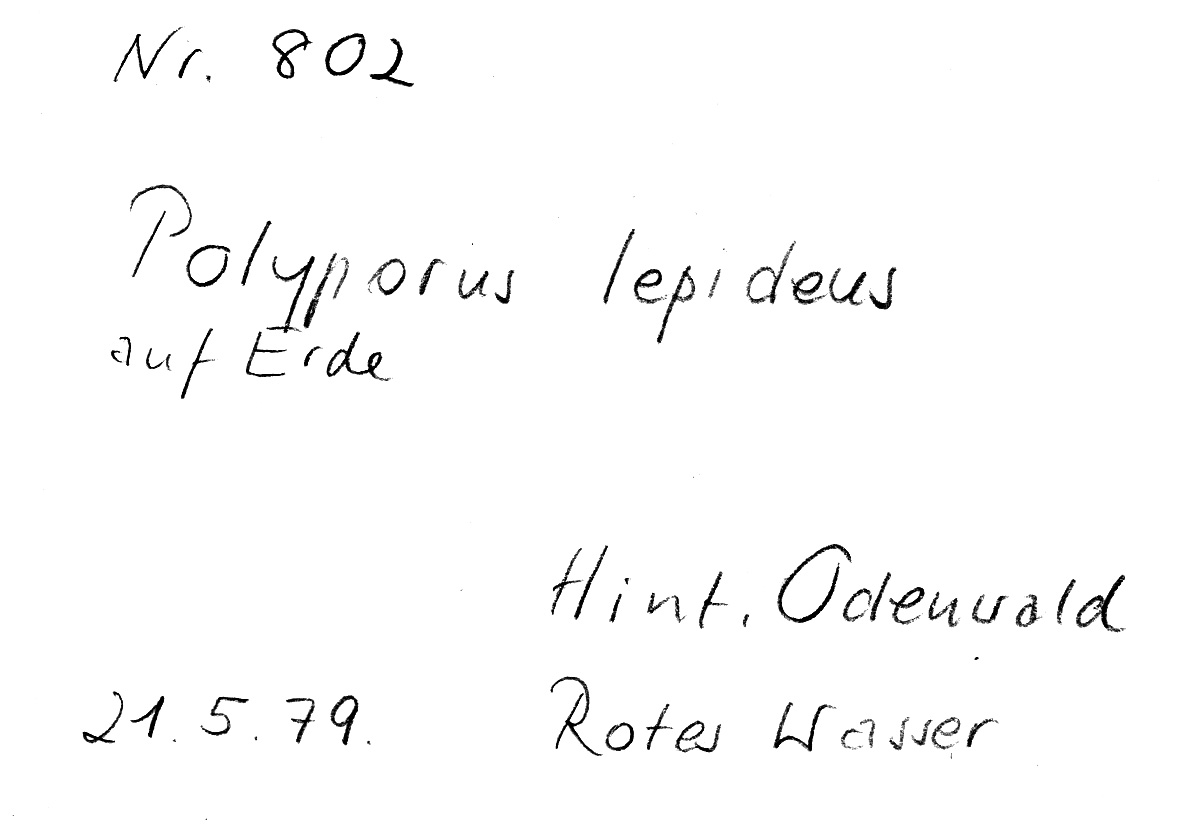 Nr. 802
Polyporus lepideus
auf Erde
Hint. Odenwald
21.5.79. Rotes Wasser